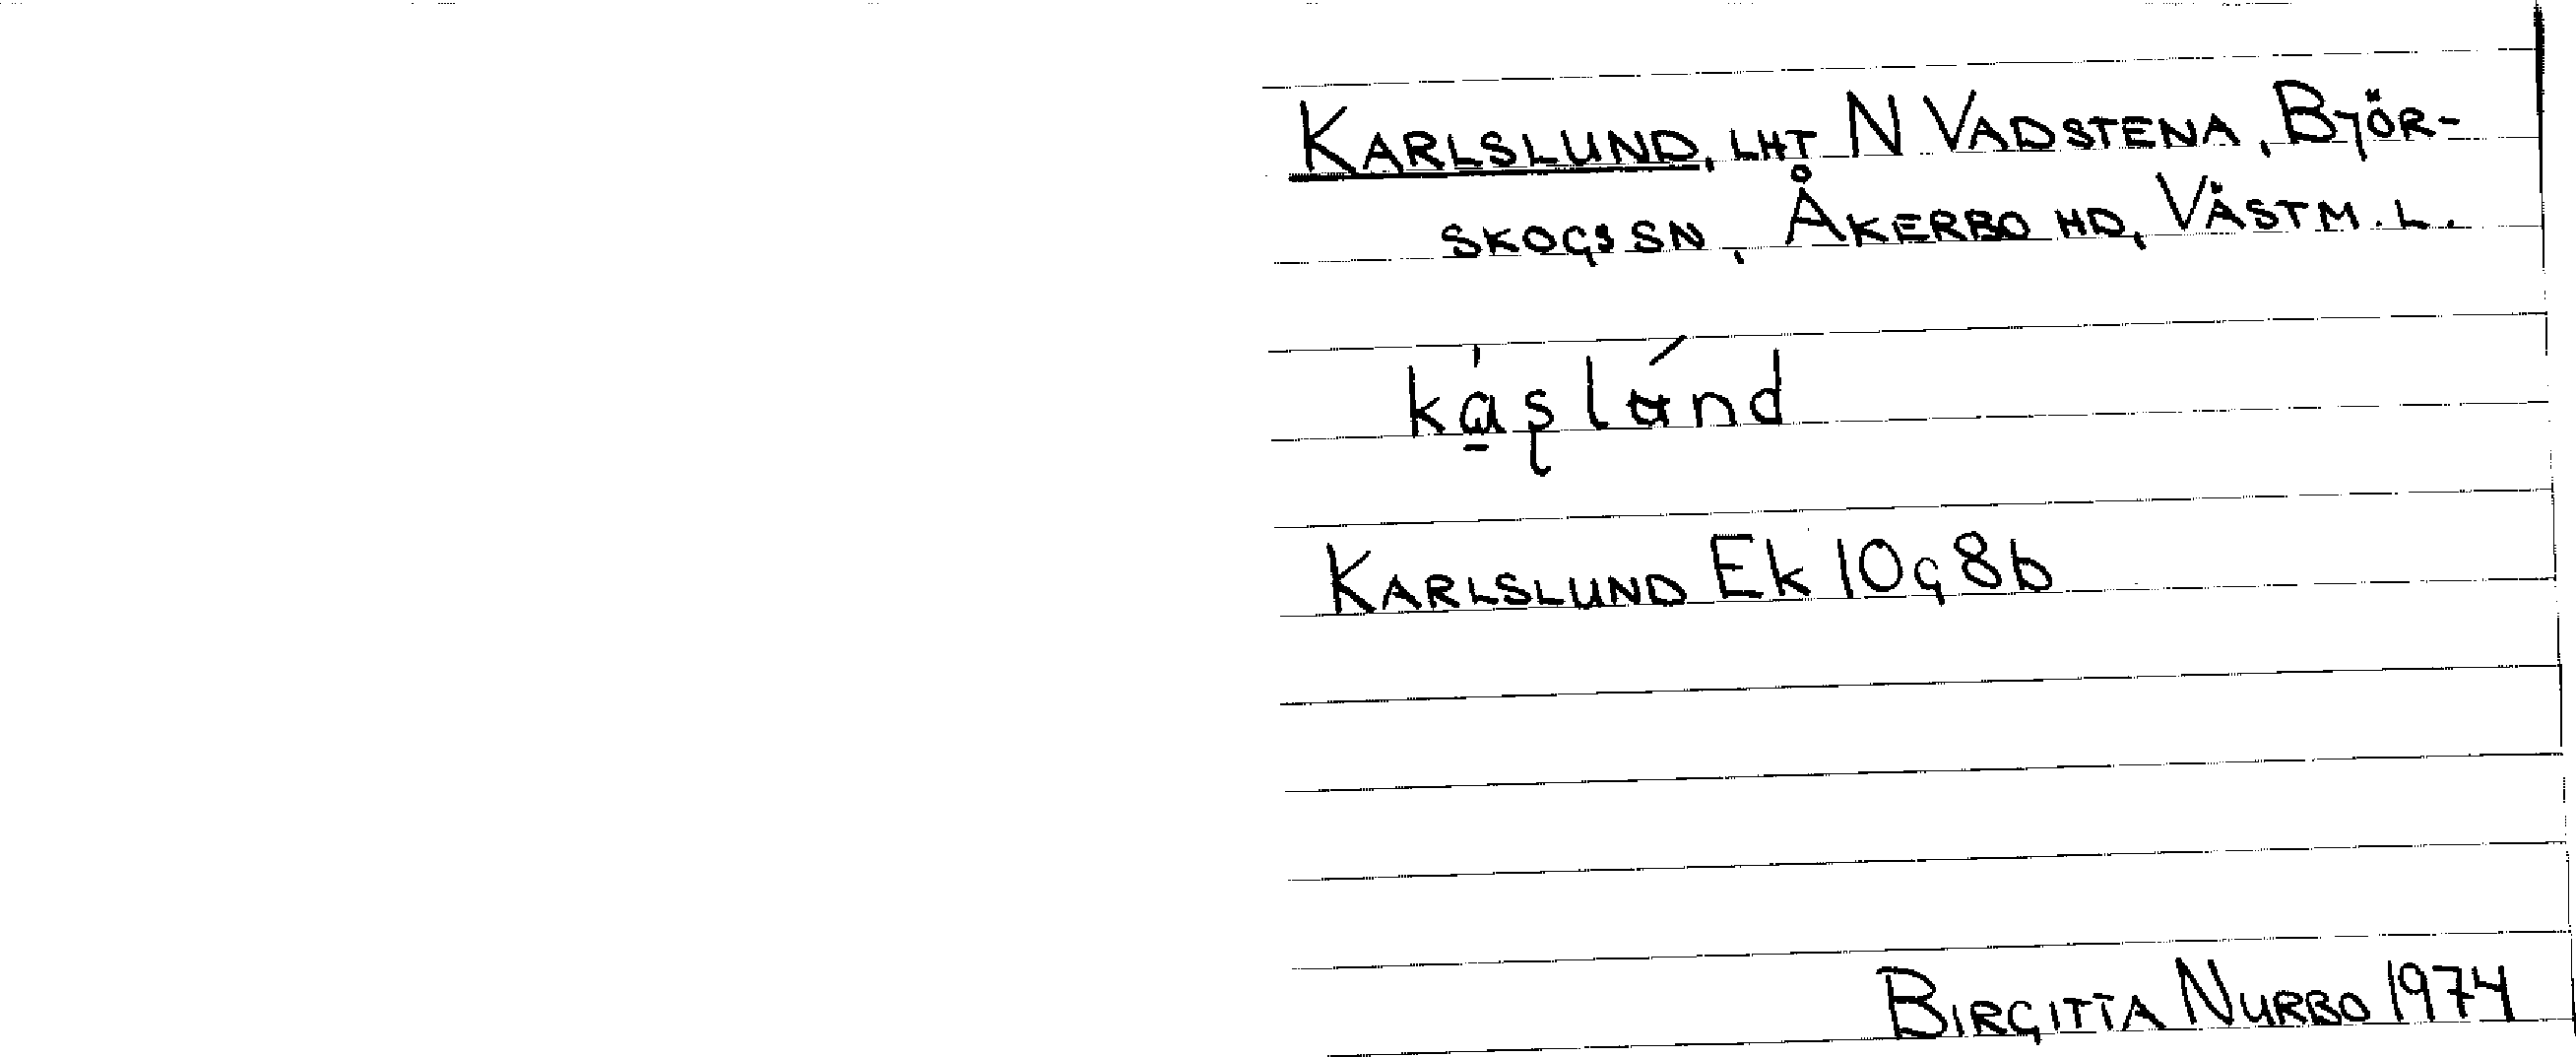 KARLSLUND, LHT N VADSTENA, BJÖR-
SKOGS SN, ÅKERBO HD, VÄSTM. L.
ka̠̍ʂlúnd
KARLSLUND Ek 10g8b
BIRGITTA NURBO 1974